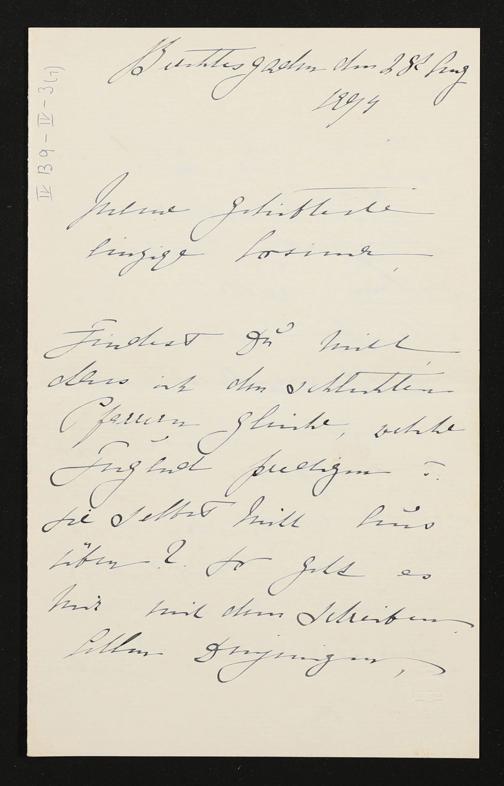 Berchtesgaden den 28t Aug
1894
IV B 9 - IV - 3 (1)
Meine geliebteste
einzige Cosima,
Findest Du nicht,
dass ich den schlechten
Pfarrern gleiche, welche
Tugend predigen u.
sie selbst nicht aus
üben? So geht es
mir mit dem Schreiben.
Allen Denjenigen,